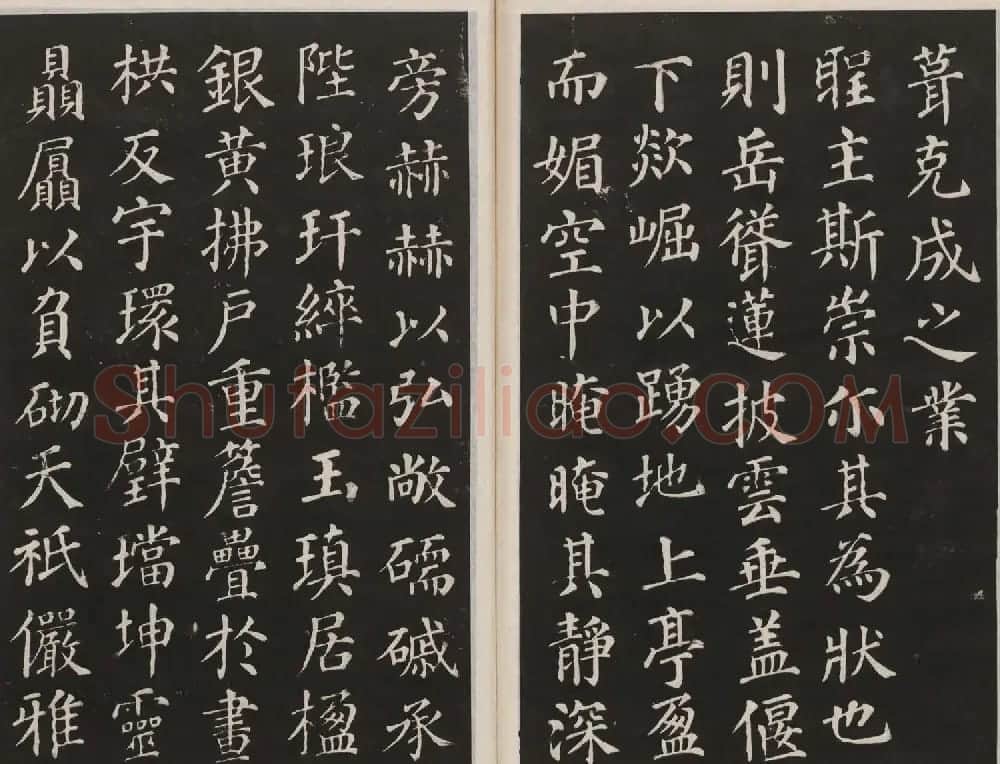 葺克成之業
聖主斯崇尒其為狀也
則岳聳蓮披雲垂盖偃
下欻崛以踴地上亭盈
而媚空中晻晻其靜深
旁赫赫以弘敞礝磩承
陛琅玕綷檻玉瑱居楹
銀黃拂戶重簷疊於畫
栱反宇環其璧璫坤靈
贔屭以負砌天祇儼雅
Shufaziliao.COM